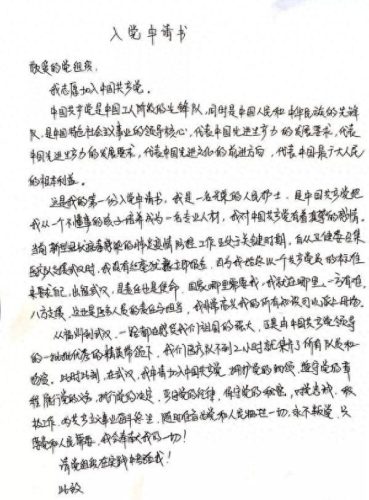 入党申请书
敬爱的党组织：
我志愿加入中国共产党。
中国共产党是中国工人阶级的先锋队，同时是中国人民和中华民族的先锋
队，是中国特色社会主义事业的领导核心，代表中国先进生产力的发展要求，代表
中国先进生产力的发展要求，代表中国先进文化的前进方向，代表中国最广大人民
的根本利益。
这是我的第一份入党申请书，我是一名光荣的人民护士，是中国共产党把
我从一个不懂事的孩子培养成为一名专业人材，我对中国共产党有着真挚的感情。
当前新型冠状病毒感染的肺炎疫情防控工作正处于关键时期，自从卫健委召集
医疗队支援武汉时，我没有犹豫立即报名，因为我始终以一个共产党员的标准
来要求自己，出征武汉，是责任也是使命，国家哪里需要我，我就在哪里，一方有难，
八方支援，这也是医务人员的责任与担当，我非常愿意我的所有知识回报给祖国。
从福州到武汉，一路都在感受我们祖国的强大，正是由中国共产党领导
的一批批优秀的精英带领下，我们医疗队不到2小时就集齐了所有队员和
物资。此时此刻，在武汉，我申请加入中国共产党，拥护党的纲领，遵守党的章
程，履行党员义务，执行党的决定，严守党的纪律，保守党的秘密，对党忠诚，积
极工作，为共产主义奋斗终身，随时准备为党和人民牺牲一切，永不叛党，只
要党和人民需要，我会奉献我的一切！
请党组织在实践中考验我！
此致